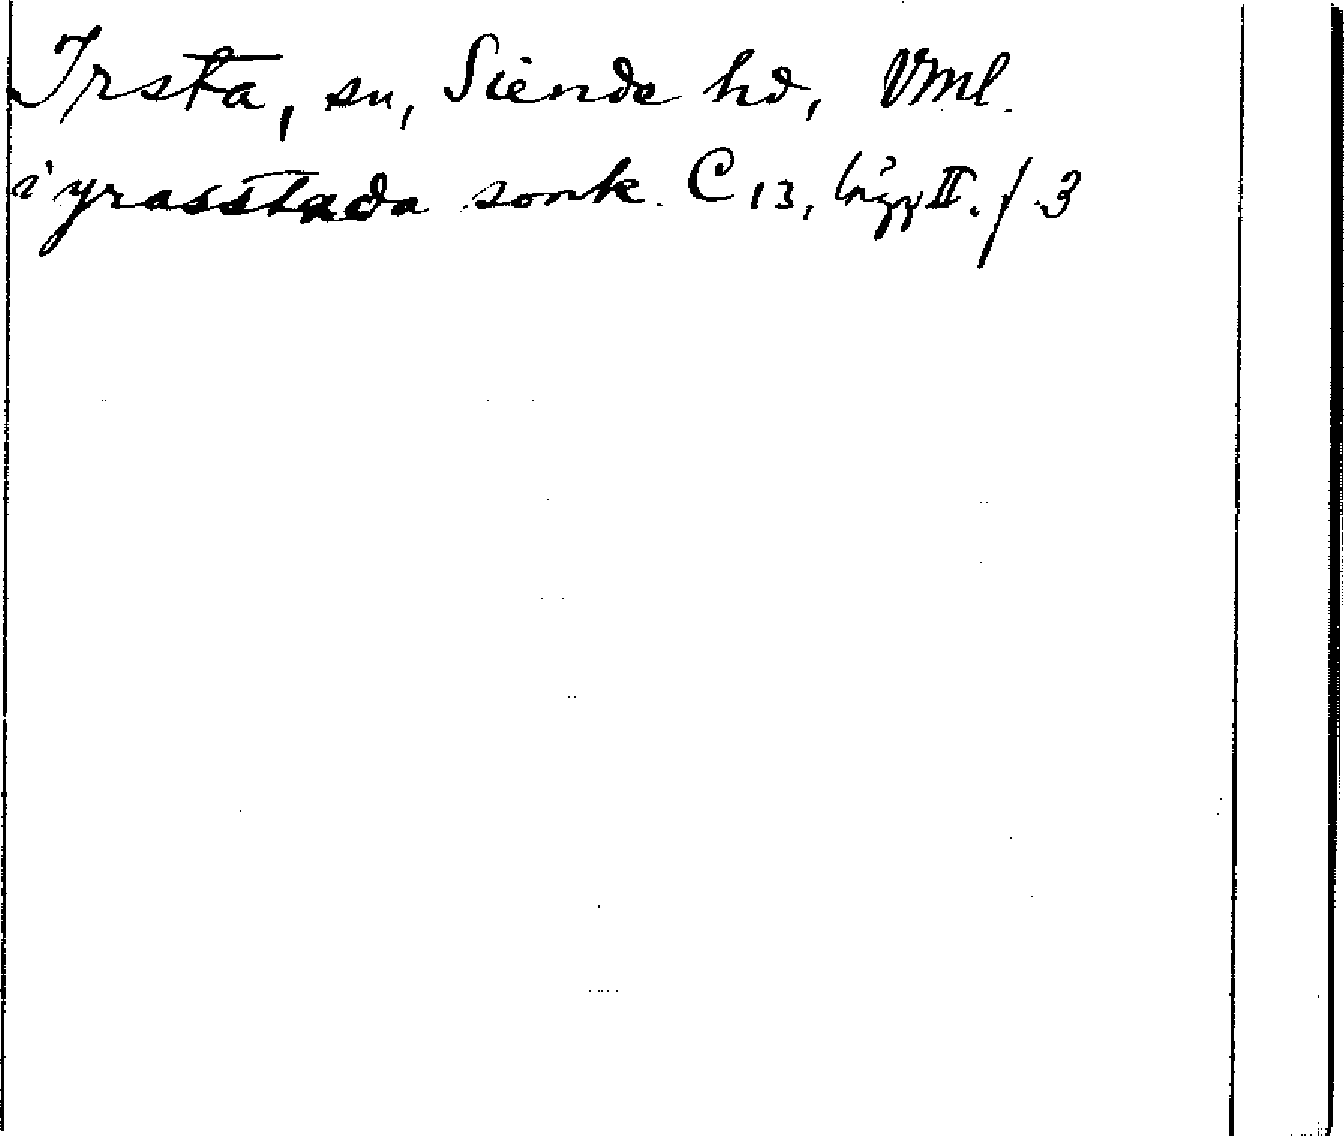 Irsta, sn, Siende hd, Vml.
i yrasstada sonk. C 13, lägg II. f. 3